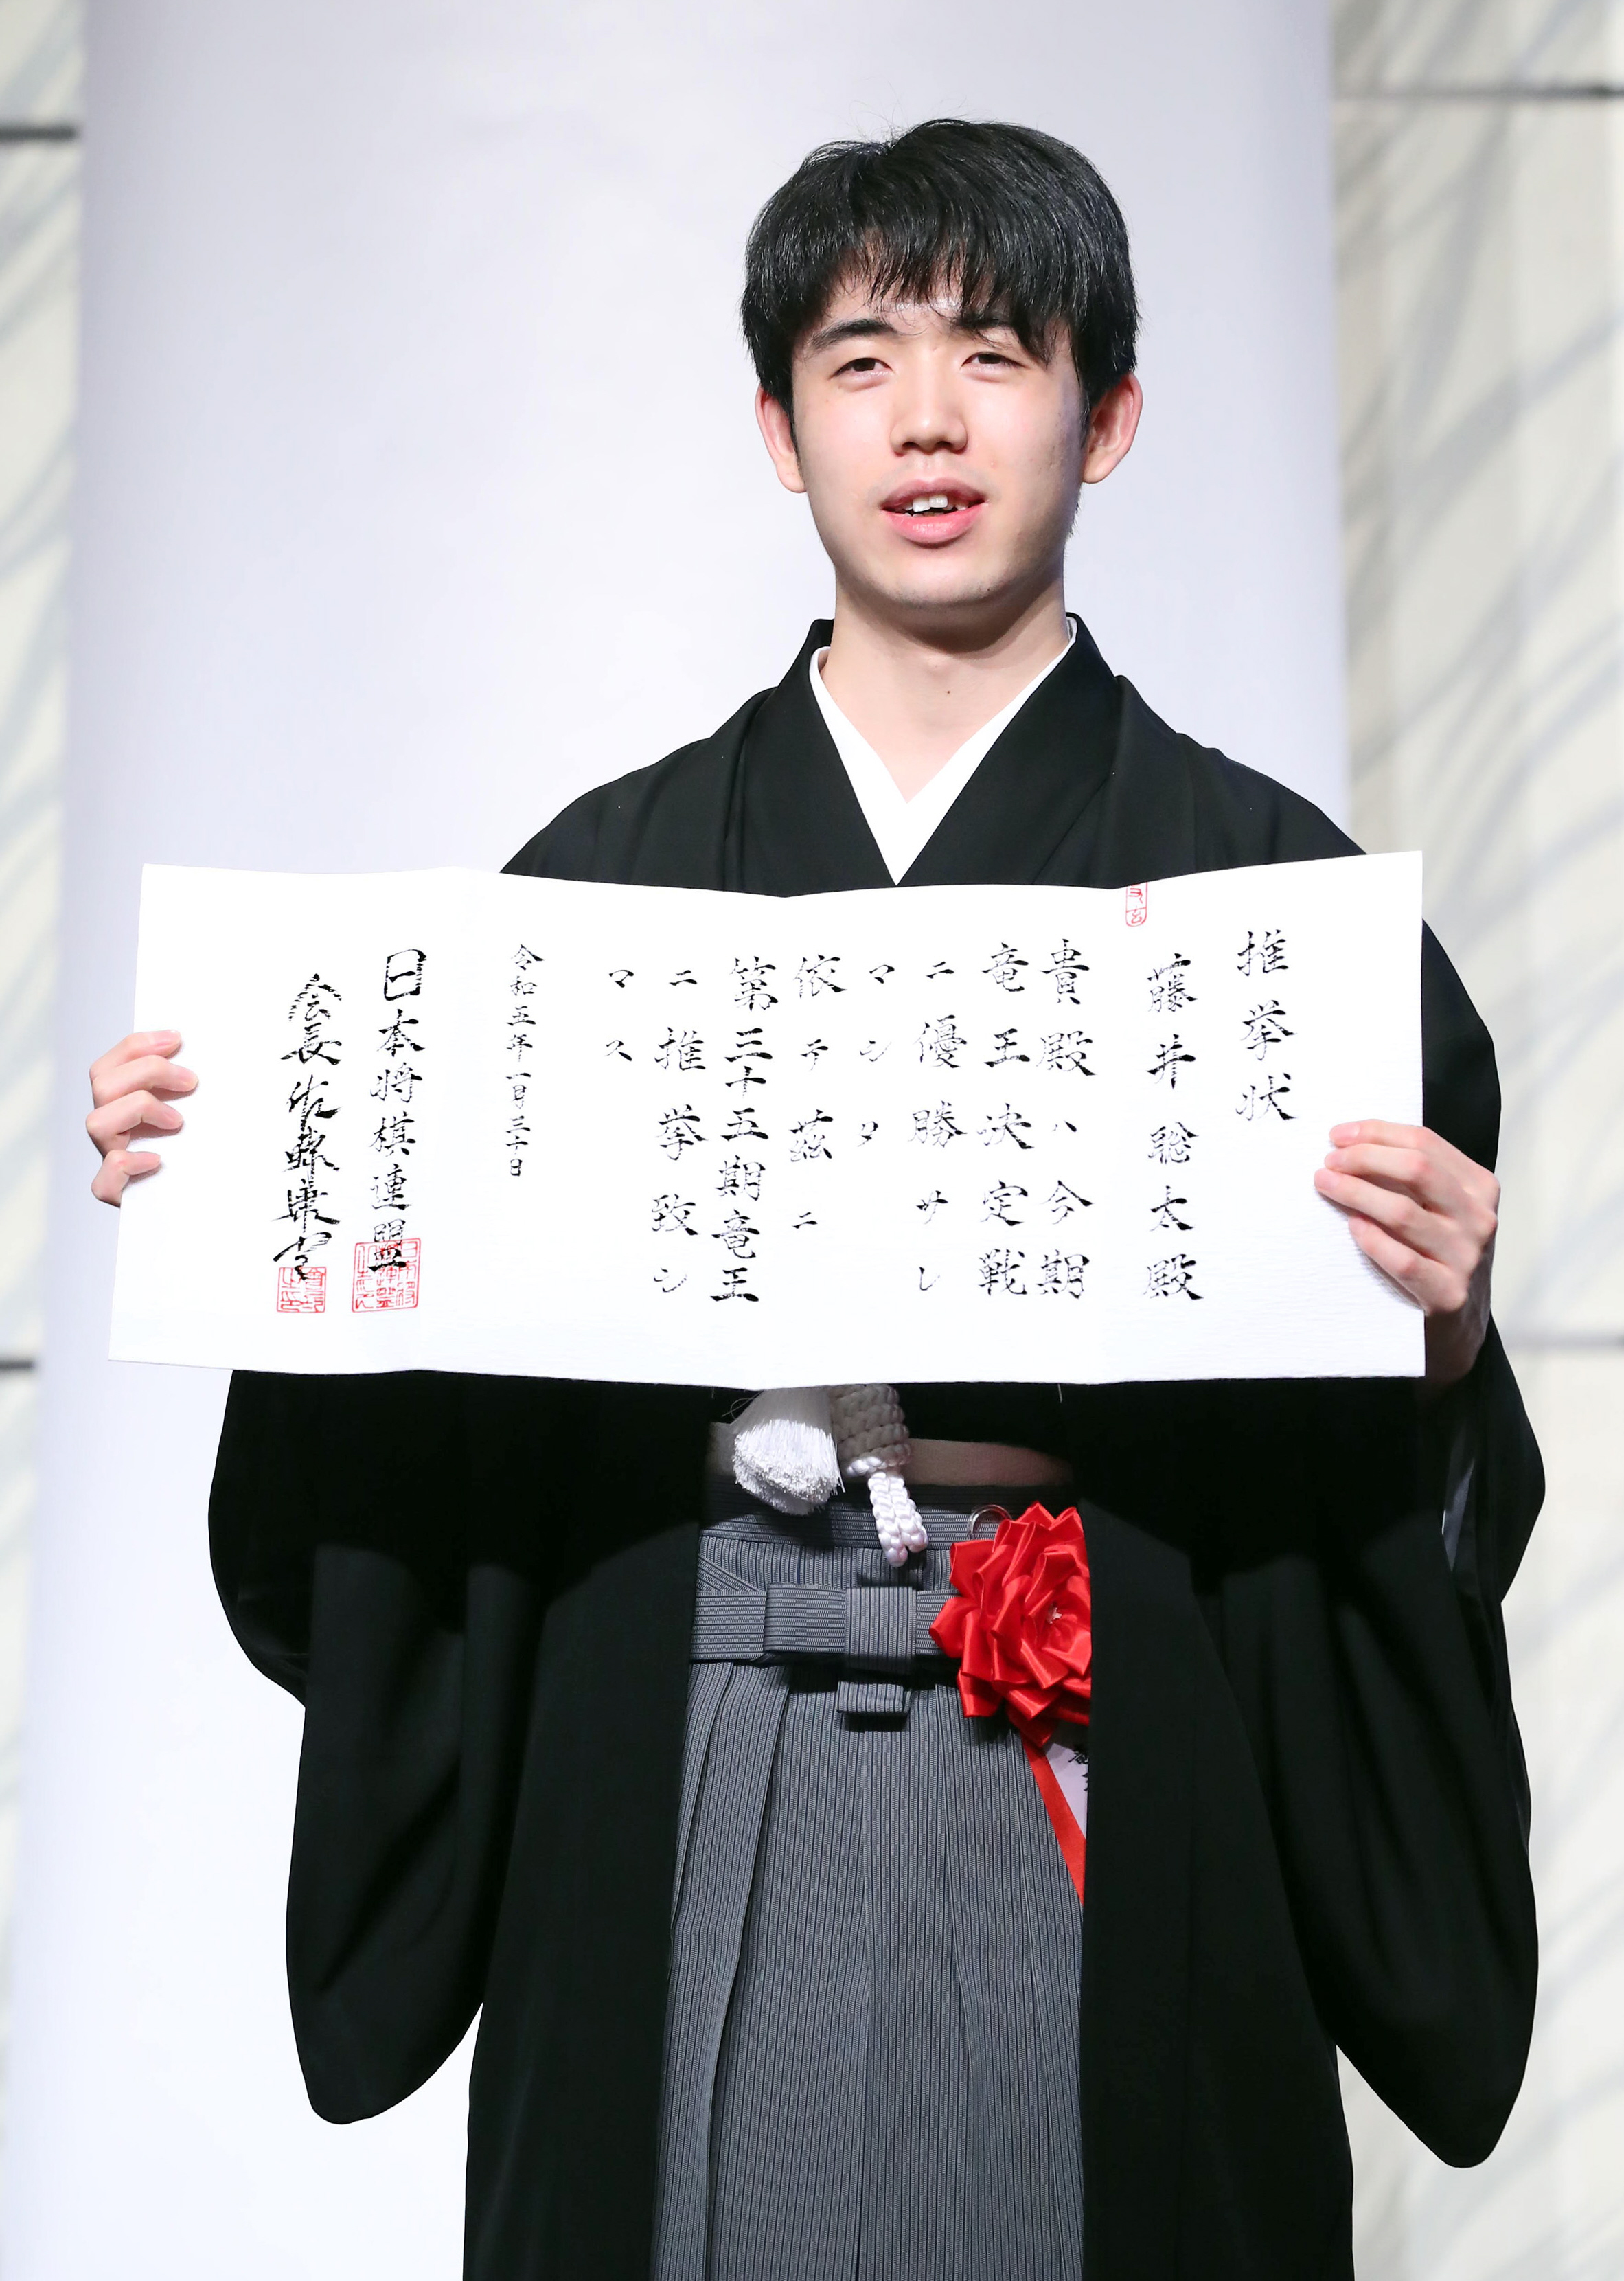 推挙状
藤井聡太殿
貴殿ハ今期
竜王決定戦
ニ優勝サレ
マシタ
依テ茲ニ
第三十五期竜王
ニ推挙致シ
マス
令和五年一月三十日
日本将棋連盟
会長佐藤康光